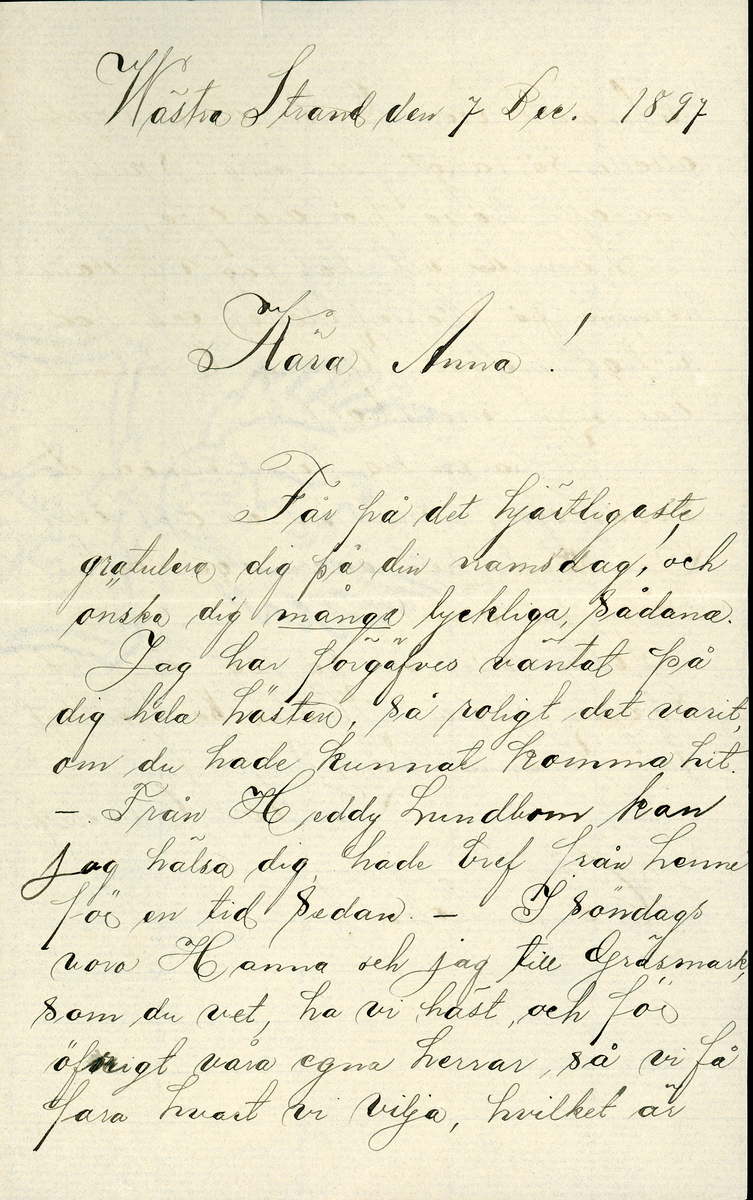 Wästra Strand den 7 Dec. 1897
Kära Anna!
Får på det hjärtligaste
gratulera dig på din namsdag, och
önska dig många lyckliga, sådana.
Jag har förgäfves väntat på
dig hela hösten, så roligt det varit,
om du hade kunnat komma hit.
–. Från Heddy Lundbom kan
jag hälsa dig, hade bref från henne
för en tid sedan. – I söndags
voro Hanna och jag till Gräsmark,
som du vet, ha vi häst, och för
öfrigt våra egna herrar, så vi få
fara hvart vi vilja, hvilket är